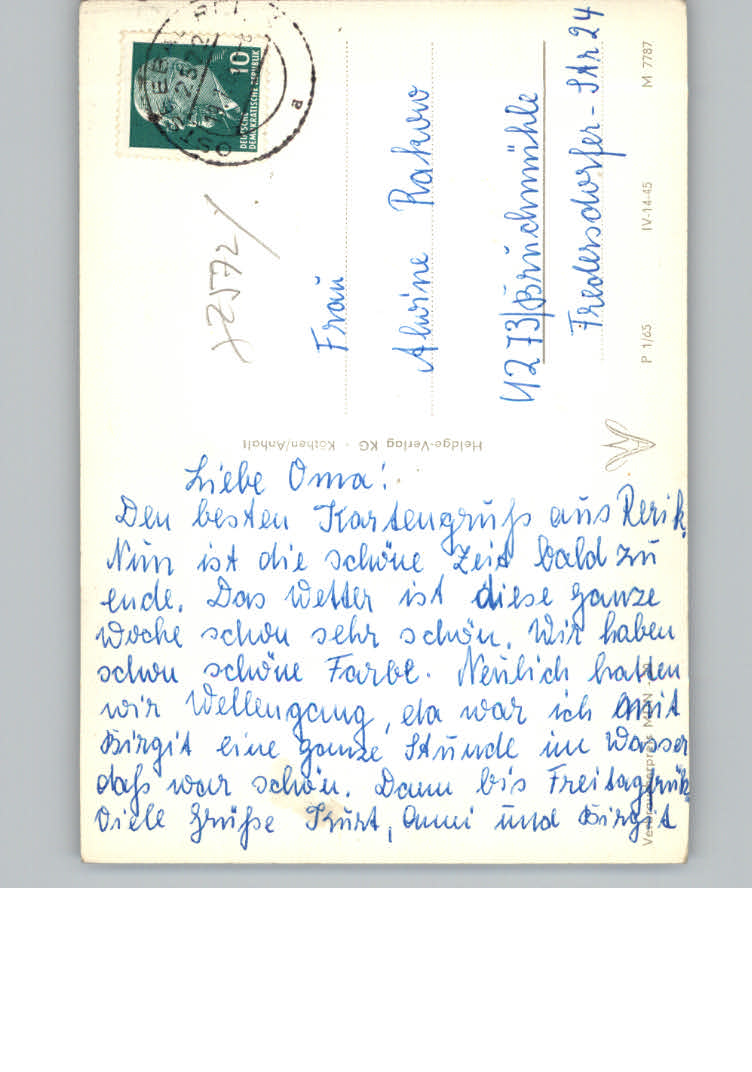 Liebe Oma!
Den besten Kartengruß aus Rerik.
Nun ist die schöne Zeit bald zu
ende. Das Wetter ist diese ganze
Woche schon sehr schön. Wir haben
schon schöne Farbe. Neulich hatten
wir Wellengang, da war ich mit
Birgit eine ganze Stunde im Wasser
daß war schön. Dann bis Freitagfrüh
Viele Grüße Kurt, Anni und Birgit
Frau
Alwine Rakow
1273 Bruchmühle
Fredersdorfer-Str 24
10
DEUTSCHE
DEMOKRATISCHE REPUBLIK
OSTSEEBAD
a
Heldge-Verlag KG · Köthen/Anhalt
P 1/65 IV-14-45 M 7787